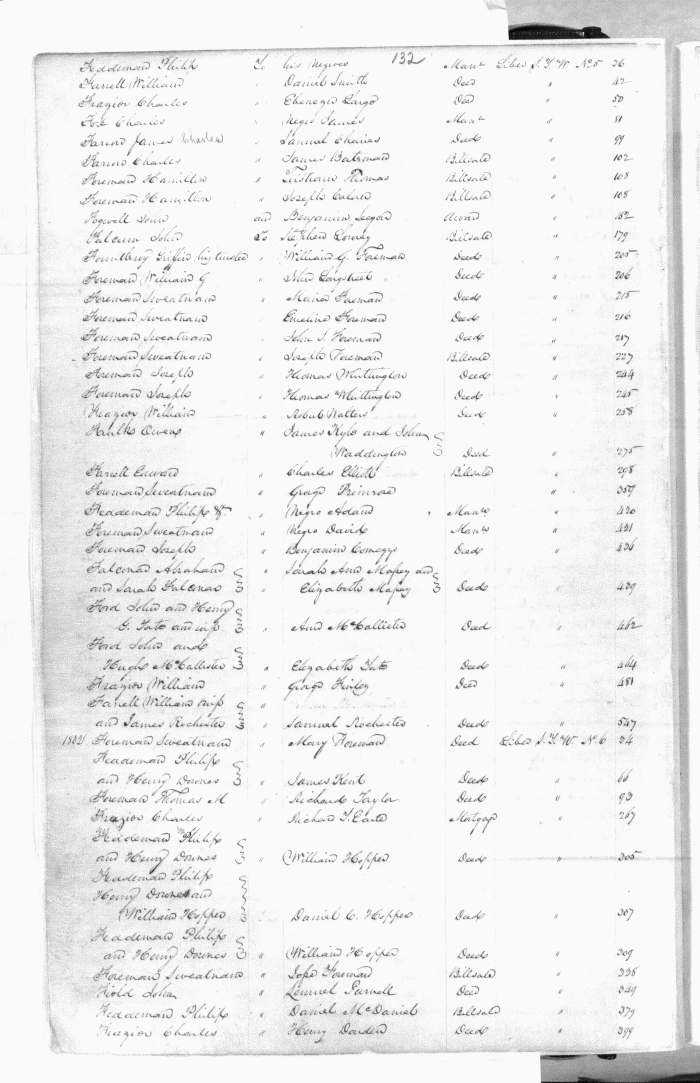 132
Feddeman Philip To his Negroes Man.ts Liber S.T.W. No 5 26
Farrell William " Daniel Smith Deed " 42
Frazior Charles " Ebenezer Largo Deed " 50
Fox Charles " Negro James Man.ts " 81
Farrow James Charles " Samuel Chaires Deed " 99
Farrow Charles " James Bateman Billsale " 102
Foreman Hamilton " Thomas Billsale " 108
Foreman Hamilton " Joseph Billsale " 108
Fogwell John and Benjamin Award " 152
Falcum John To Stephen Lowrey Billsale " 179
Fountleroy Griffin his trustee " William G. Foreman Deed " 205
Foreman William G " John Longstreet Deed " 206
Foreman Sweatnam " Maria Foreman Deed " 215
Foreman Sweatnam " Emeline Foreman Deed " 216
Foreman Sweatnam " John S. Foreman Deed " 217
Foreman Sweatnam " Joseph Foreman Billsale " 227
Foreman Joseph " Thomas Whittington Deed " 244
Foreman Joseph " Thomas Whittington Deed " 245
Frazior William " Robert Walters Deed " 258
Faulks Owens " James Kyle and John
Waddington Deed " 275
Farrell Edward " Charles Elliott Billsale " 298
Foreman Sweatnam " George Primrose " 359
Feddeman Philip F. " Negro Adam Man.ts " 420
Foreman Sweatnam " Negro David Man.ts " 421
Foreman Joseph " Benjamin Comegys Deed " 436
Falconar Abraham " Sarah Ann Massey and
and Sarah Falconar Elizabeth Massey Deed " 439
Ford John and Henry
G. Tate and wife " Ann McCallister Deed " 462
Ford John and
Hugh McCallister " Elizabeth Tate Deed " 464
Frazior William " George Finley Deed " 481
Farrell William wife
and James Rochester " Samuel Rochester Deed " 547
Foreman Sweatnam " Mary Foreman Deed Liber S.T.W. No 6 34
Feddeman Philip
and Henry Downes " James Kent Deed " 66
Foreman Thomas M " Richard Taylor Deed " 93
Frazior Charles " Richard T. Earle Mortgage " 267
Feddeman Philip
and Henry Downes " William Hopper Deed " 305
Feddeman Philip
Henry Downes and
William Hopper Daniel C. Hopper Deed " 307
Feddeman Philip
and Henry Downes " William Hopper Deed " 309
Foreman Sweatnam " Foreman Billsale " 338
Field John " Lemuel Purnell Deed " 349
Feddeman Philip " Daniel McDaniel Billsale " 379
Frazior Charles " Henry Darden Deed " 399